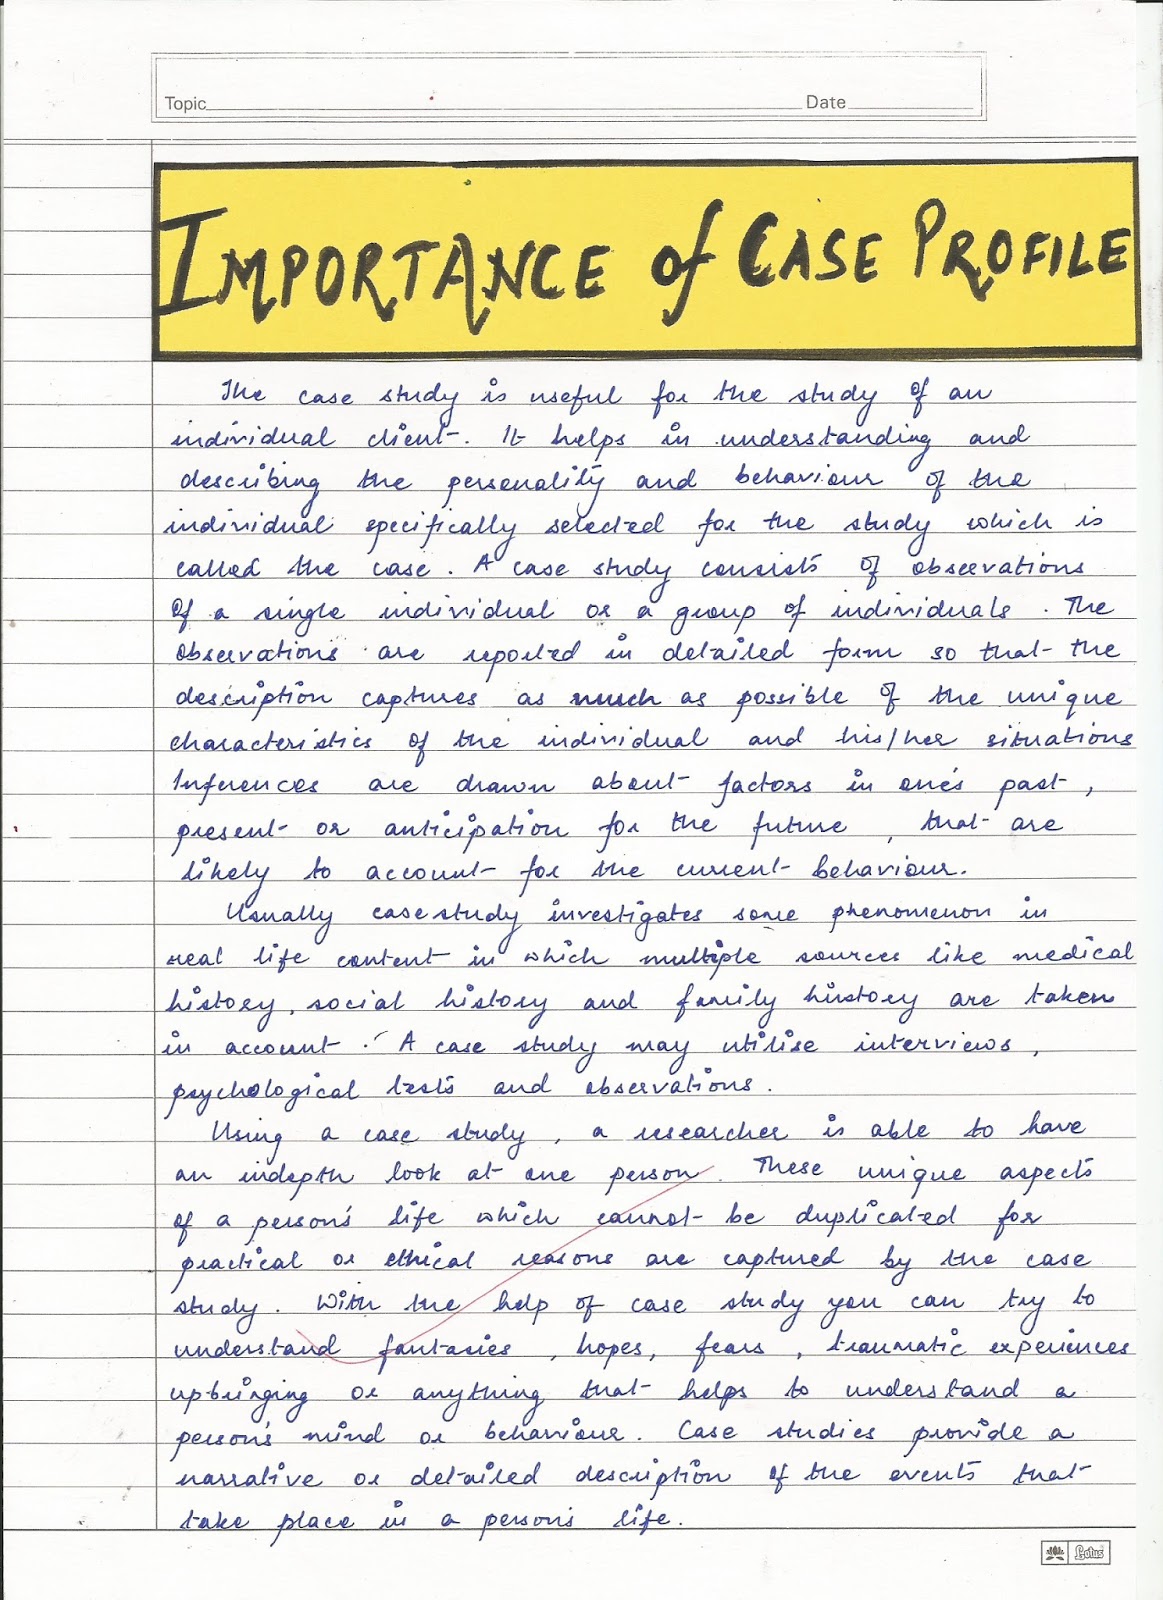 Topic Date
IMPORTANCE of CASE PROFILE
The case study is useful for the study of an
individual client. It helps in understanding and
describing the personality and behaviour of the
individual specifically selected for the study which is
called the case. A case study consists of observations
of a single individual or a group of individuals. The
observations are reported in detailed form so that the
description captures as much as possible of the unique
characteristics of the individual and his/her situations
Inferences are drawn about factors in one's past,
present or anticipation for the future, that are
likely to account for the current behaviour.
Usually case study investigates some phenomenon in
real life content in which multiple sources like medical
history, social history and family history are taken
in account. A case study may utilise interviews,
psychological tests and observations.
Using a case study, a researcher is able to have
an indepth look at one person. These unique aspects
of a person's life which cannot be duplicated for
practical or ethical reasons are captured by the case
study. With the help of case study you can try to
understand fantasies, hopes, fears, traumatic experiences
upbringing or anything that helps to understand a
person's mind or behaviour. Case studies provide a
narrative or detailed description of the events that
take place in a person's life.
Lotus